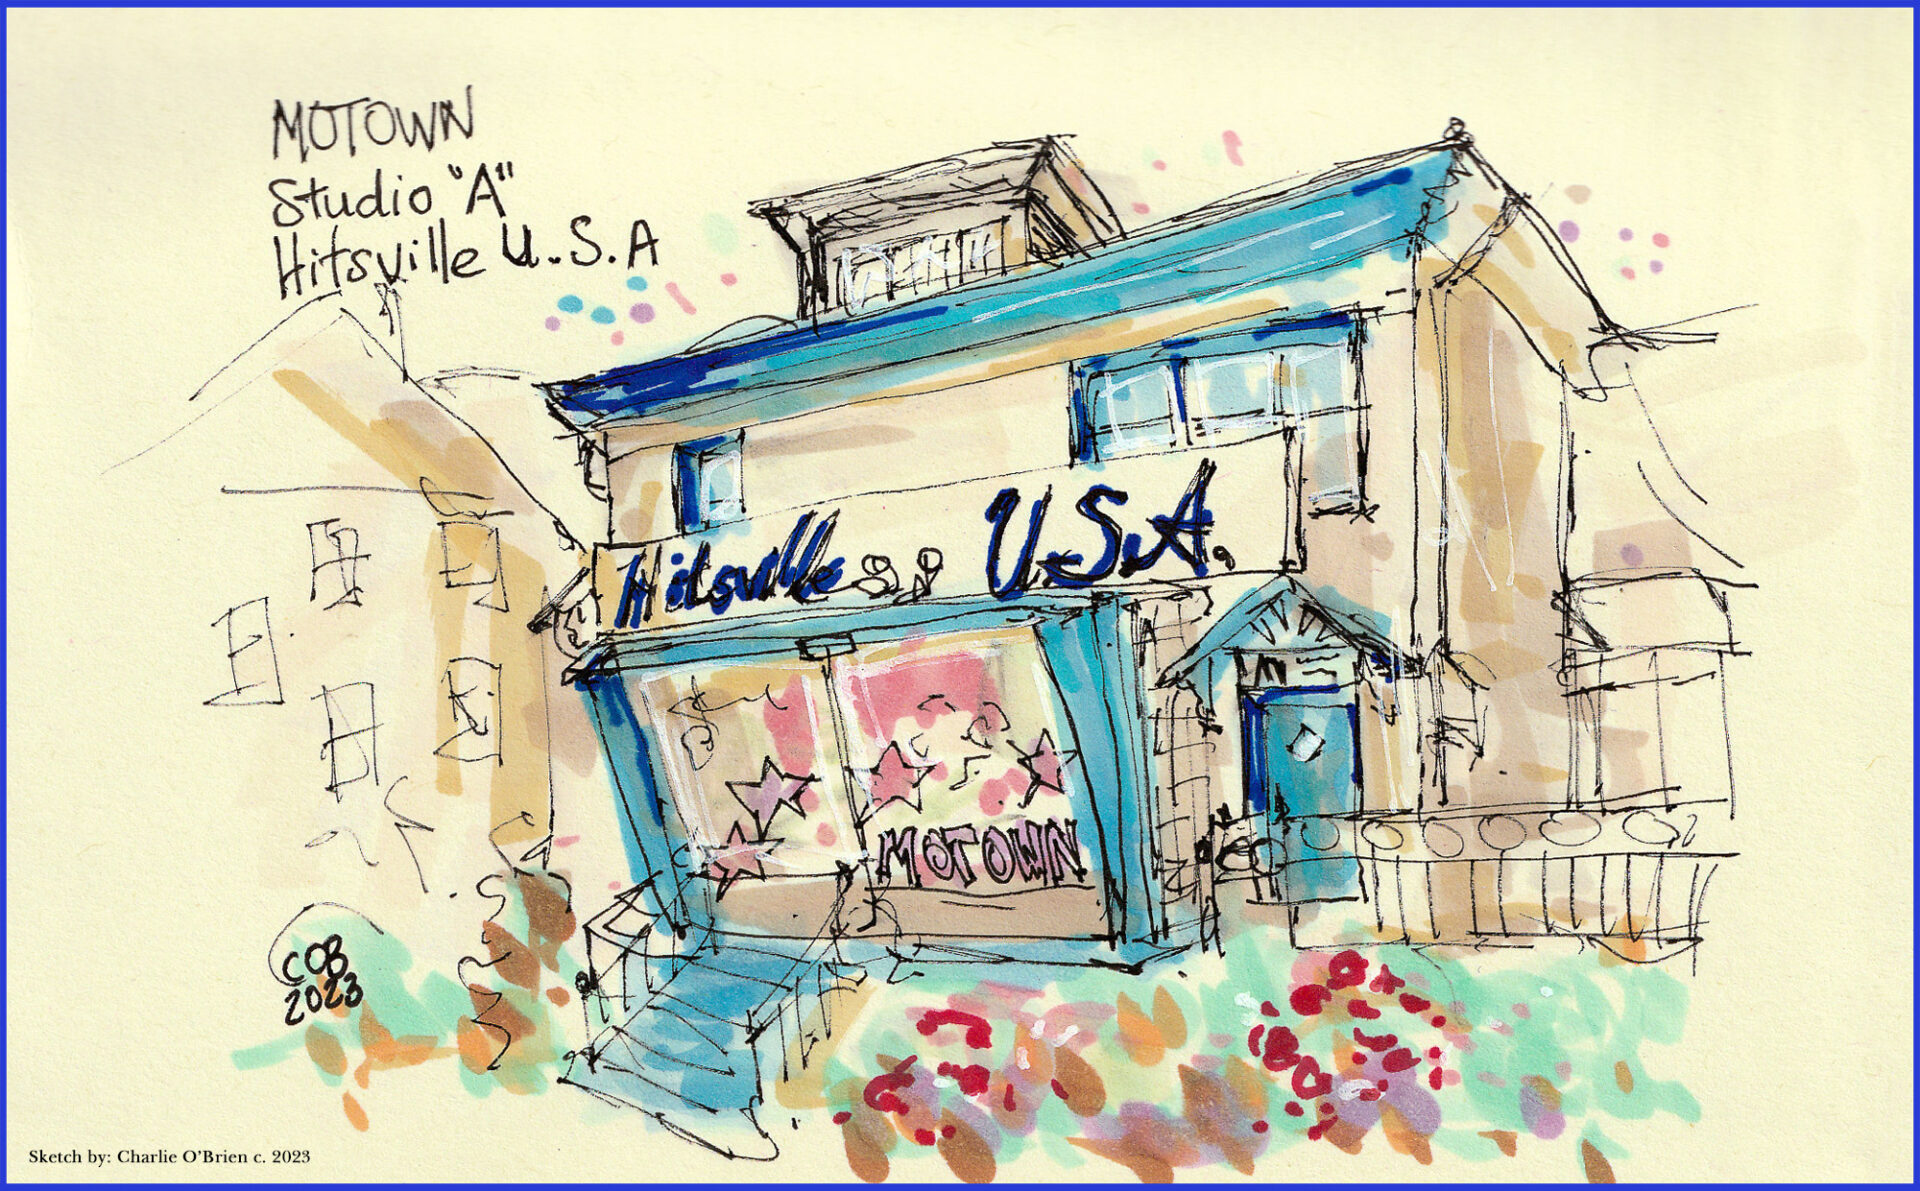 MOTOWN
Studio "A"
Hitsville U.S.A
Hitsville U.S.A.
MOTOWN
COB
2023
Sketch by: Charlie O'Brien c. 2023